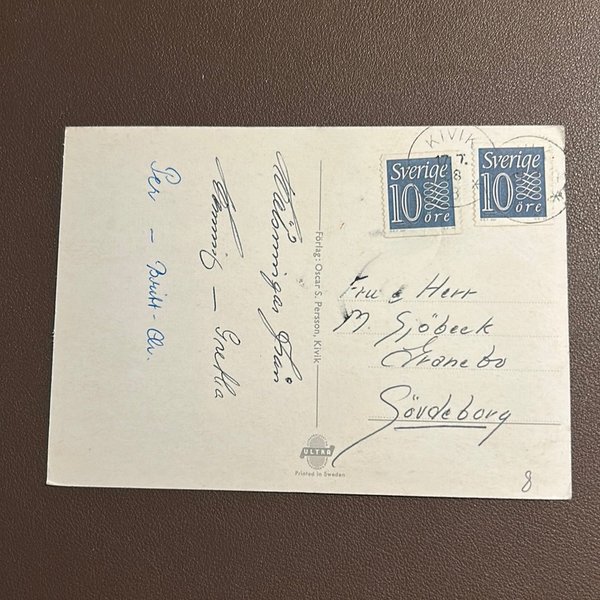 Hälsningar från
– Gretha
Per – Britt-
Förlag: Oscar S. Persson, Kivik
KIVIK
Sverige
10
öre
Sverige
10
öre
Fru & Herr
M. Sjöbeck
Granebo
Sövdeborg
ULTRA
Printed in Sweden
8